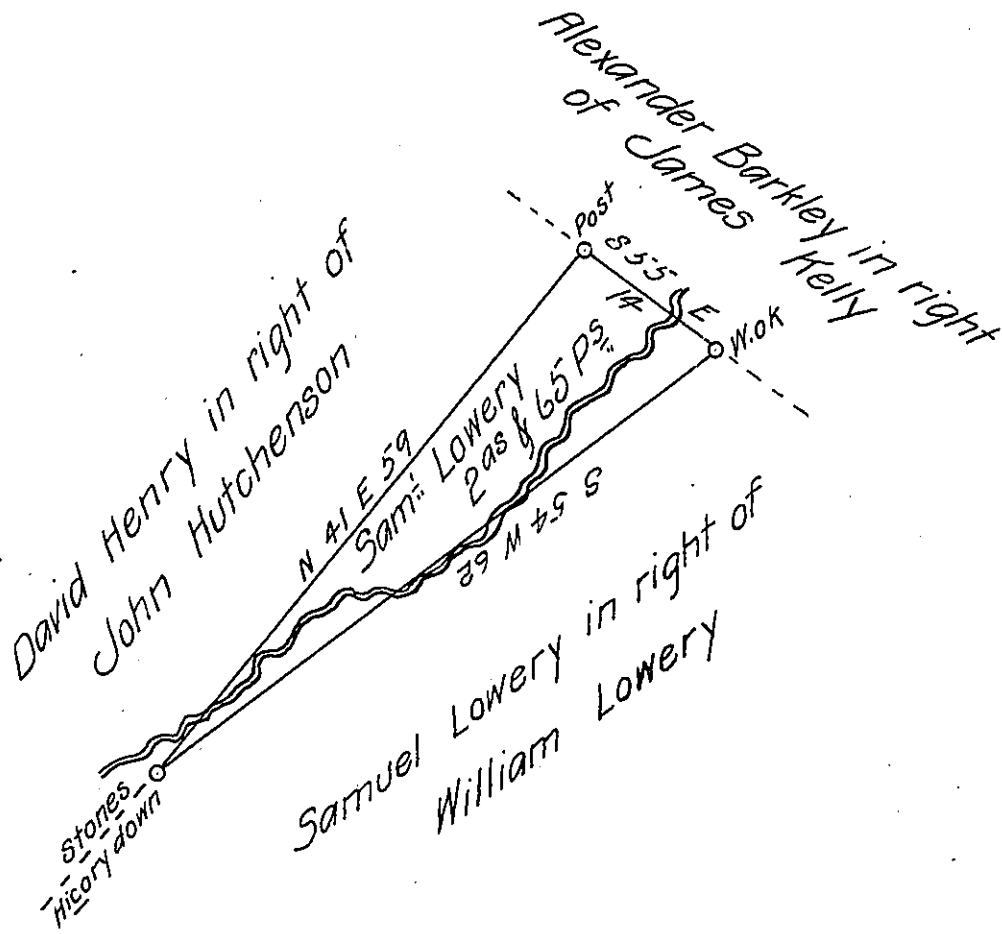 Alexander Barkley in right
of James Kelly
David Henry in right of
John Hutchenson
Post
S 55 E
14
W.OK
N 41 E 59
Sam:l Lowery
2as & 65 Ps.
S 54 W 62
Samuel Lowery in right of
William Lowery
Stones
Hicory down